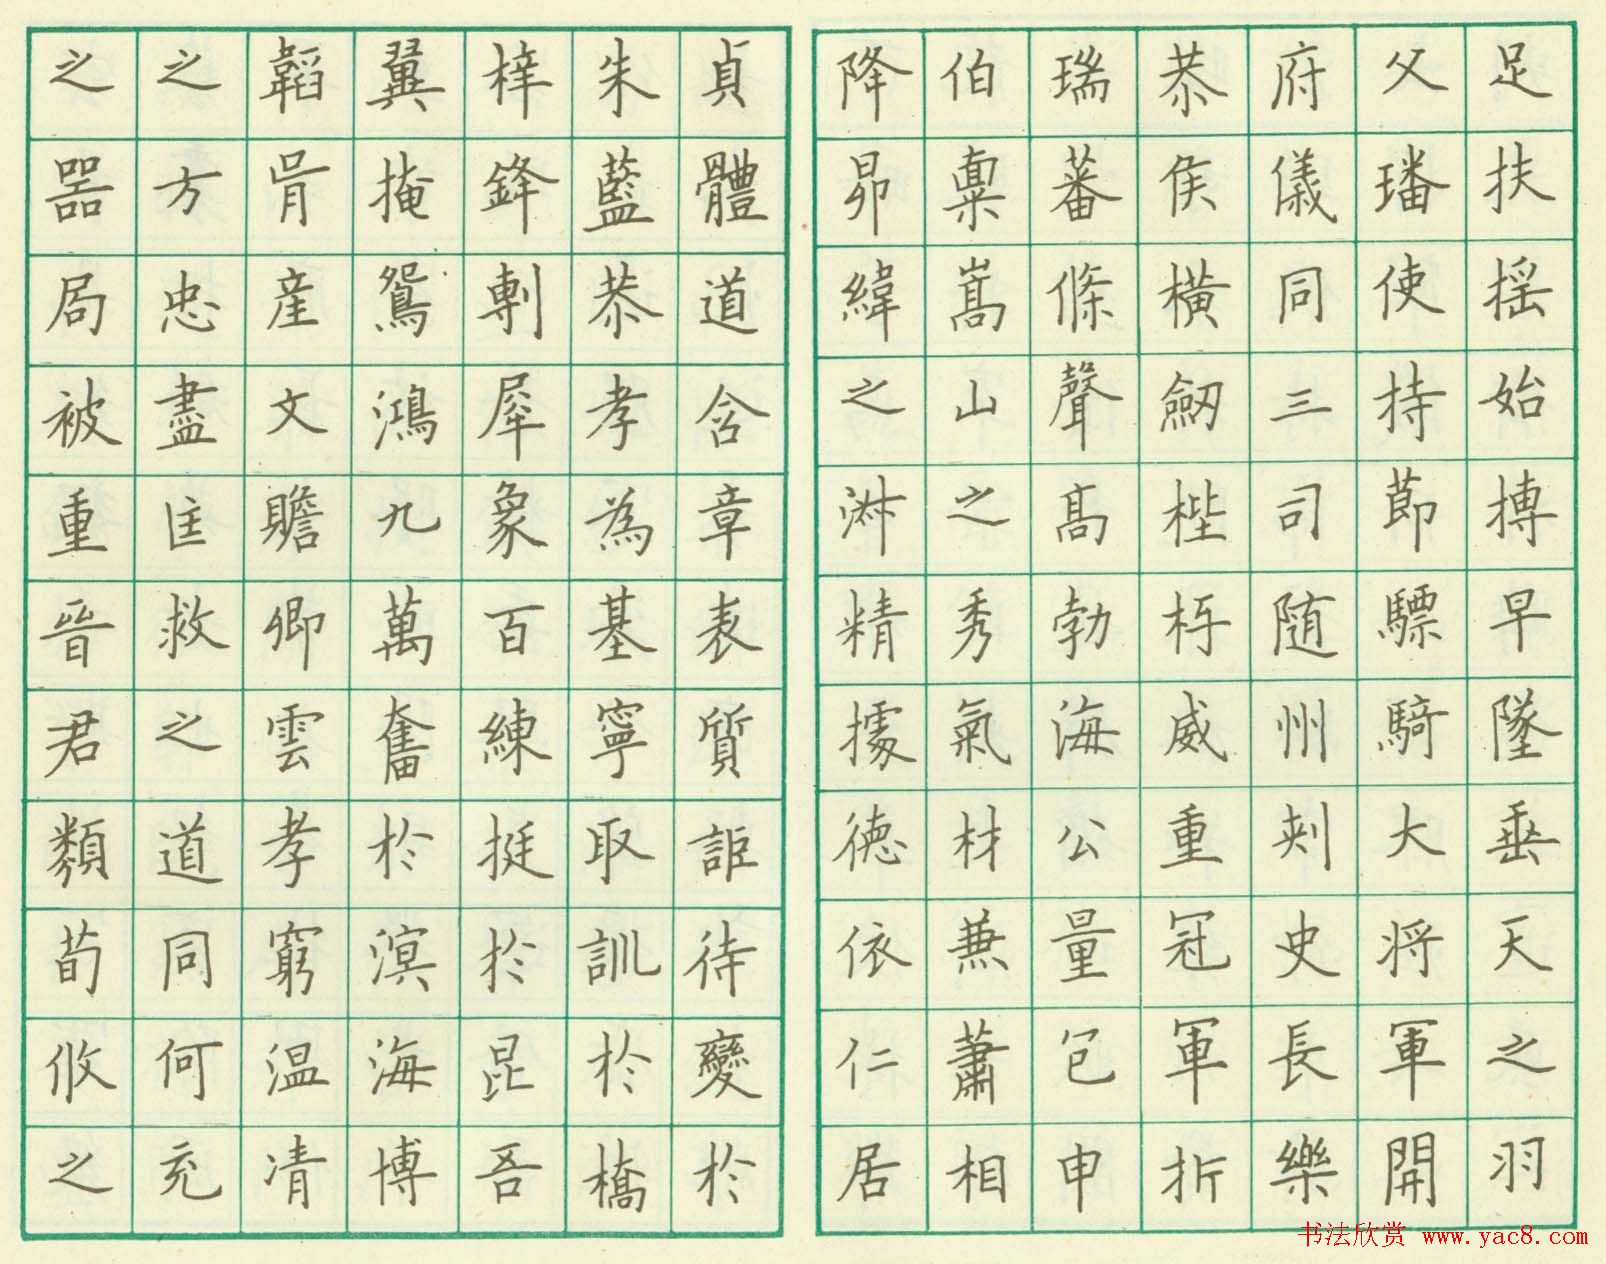 足扶摇始搏早墜垂天之羽
父璠使持莭驃騎大将軍開
府儀同三司随州刾史長樂
恭侯橫劒梐枑威重冠軍折
瑞蕃條聲髙勃海公量包申
伯稟嵩山之秀氣材兼蕭相
降昴緯之淑精據德依仁居
貞體道含章表質詎待變於
朱藍恭孝為基寧取訓於橋
梓鋒剸犀象百練挺於昆吾
翼掩鴛鴻九萬奮於溟海博
韜胥産文贍卿雲孝窮温凊
之方忠盡匡救之道同何充
之器局被重晉君類荀攸之
书法欣赏 www.yac8.com